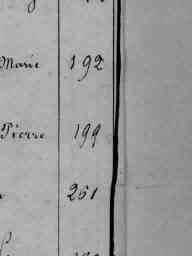 Marie 192
Pierre 199
251